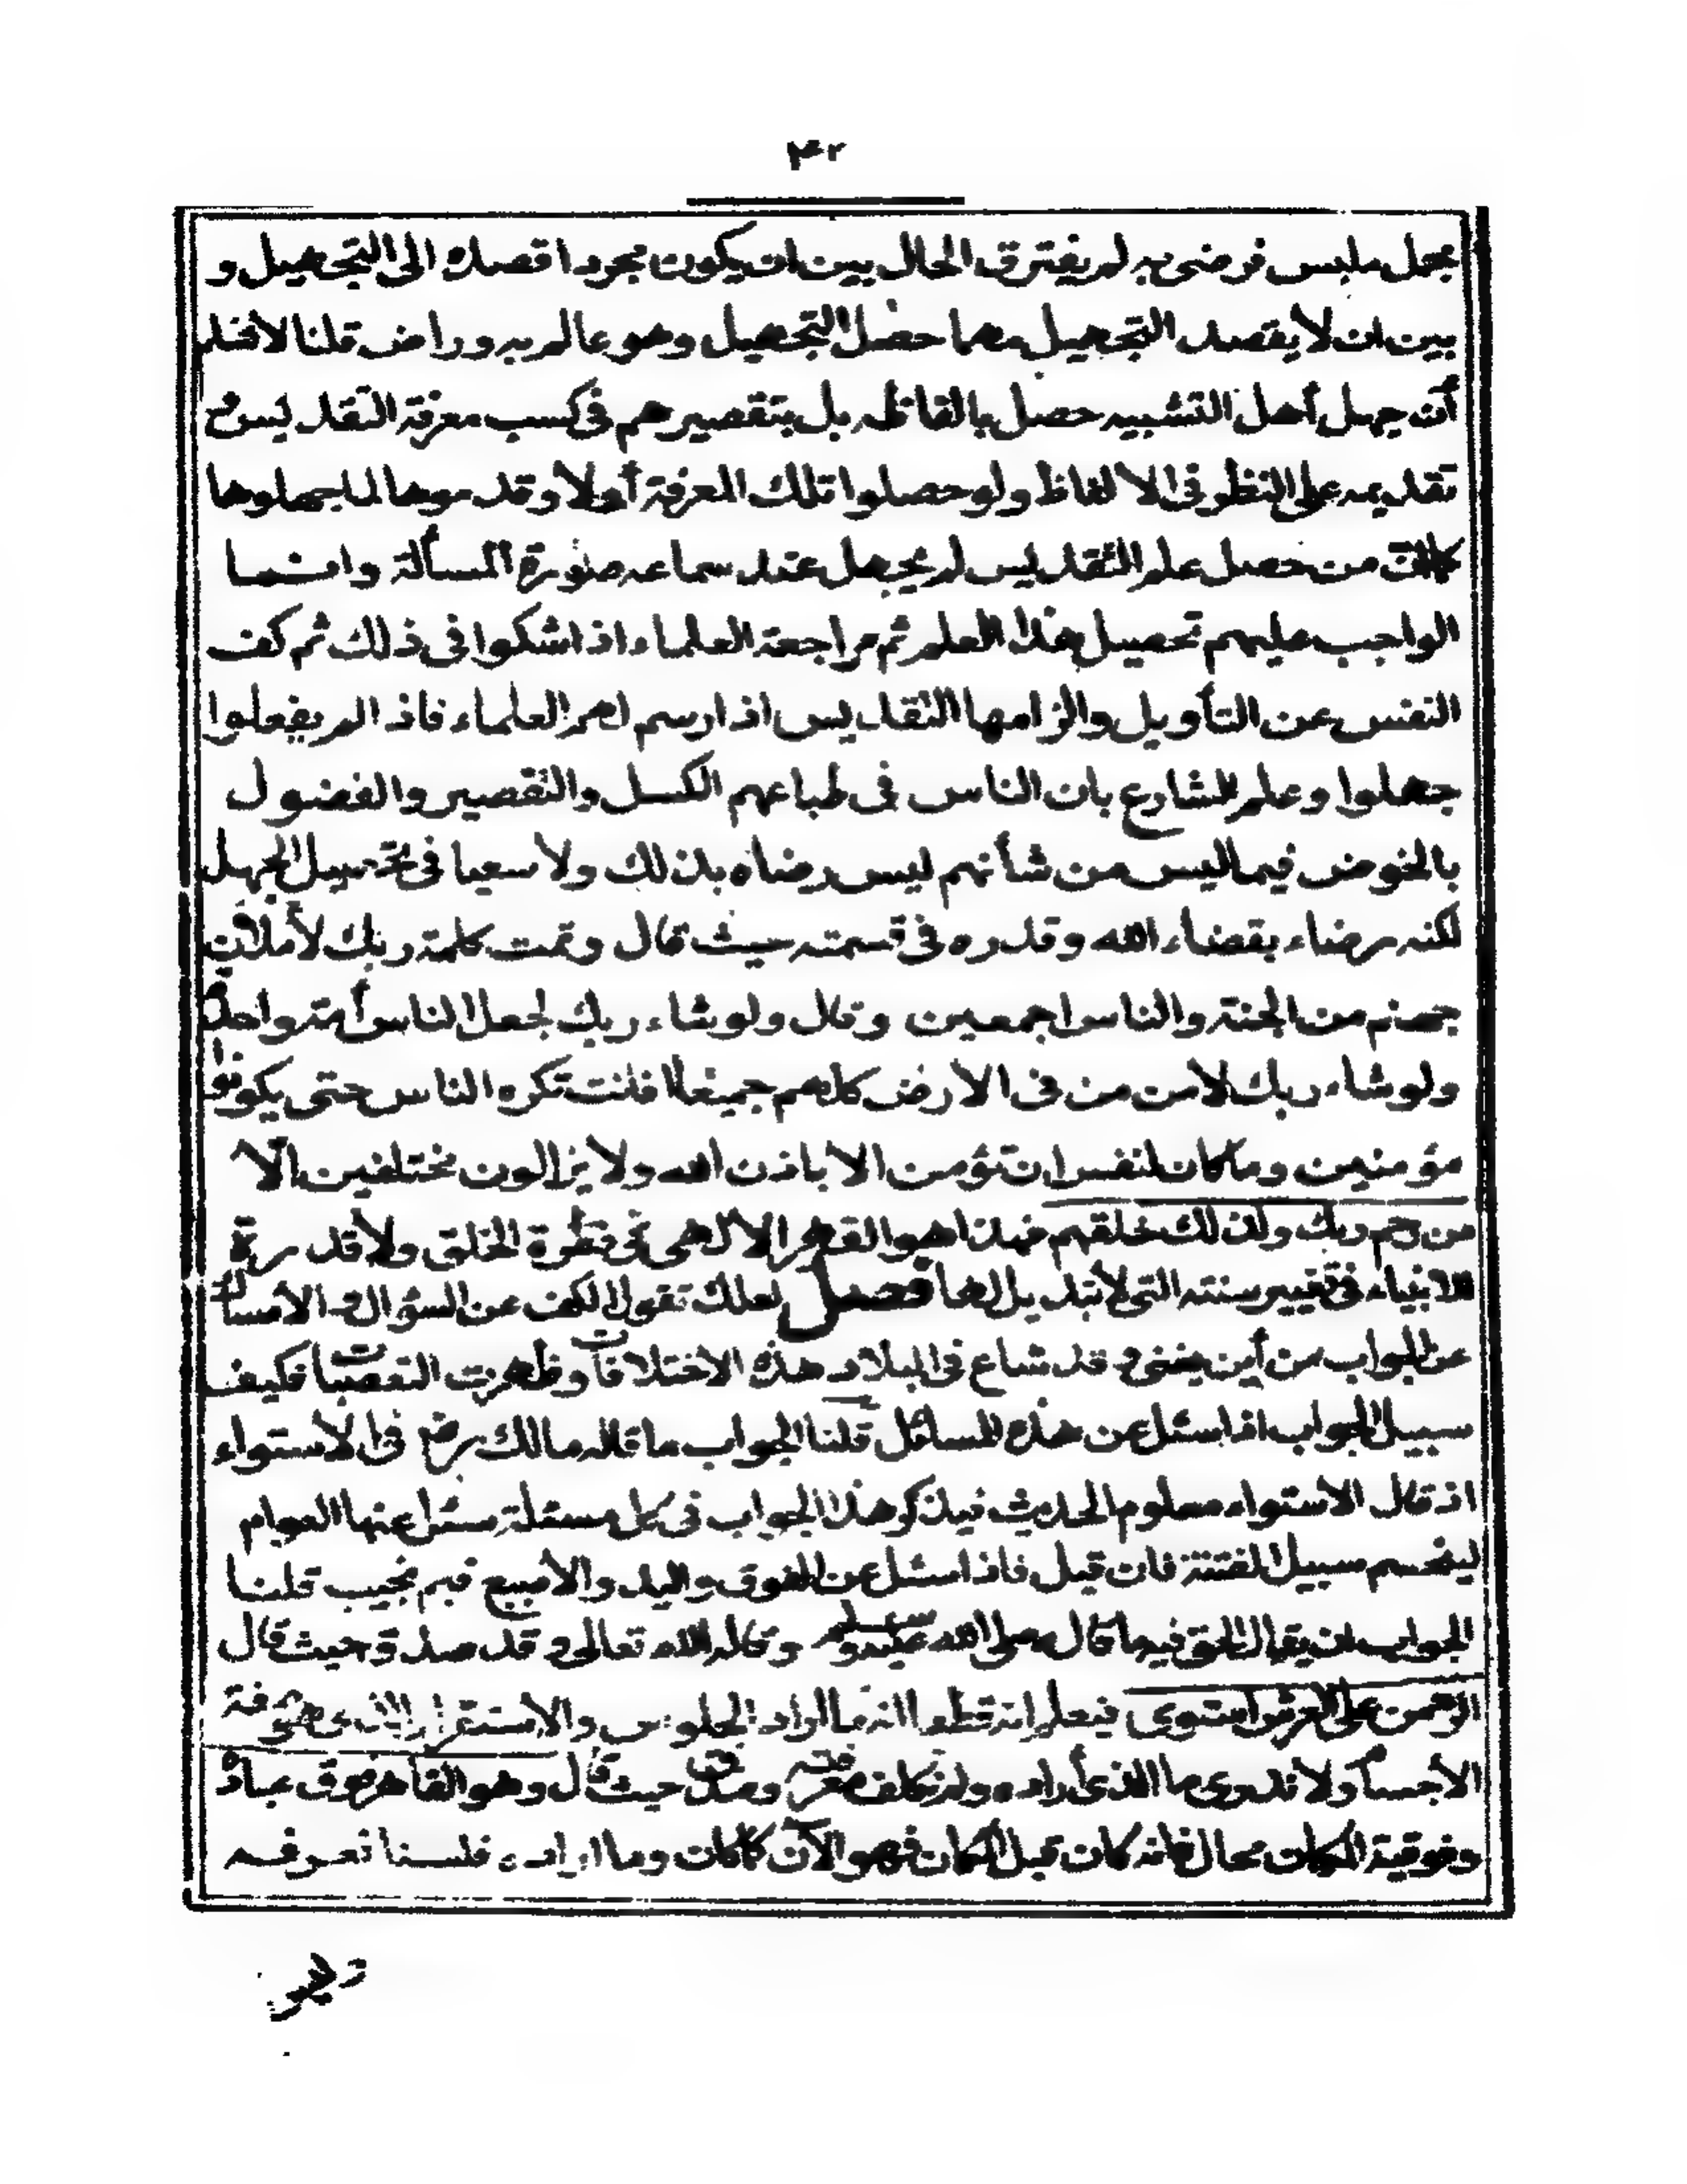 ۴۲
بجهل ملبس فرضى به لم يفترق الحال بين ان يكون مجردا قصده الى التجهيل و
بين ان لا يقصد التجهيل مهما حصل التجهيل وهو عالم به وراض قلنا لا نسلم
أن جهل أهل التشبيه حصل بالفاظه بل بتقصيرهم فى كسب معرفة التقديس و
تقديمه على النظر فى الالفاظ ولو حصلوا تلك المعرفة أولا وقدموها لما جهلوها
كما ان من حصل علم التقديس لم يجهل عند سماعه صورة المسألة وانما
الواجب عليهم تحصيل هذا العلم ثم مراجعة العلماء اذا شكوا فى ذلك ثم كف
النفس عن التأويل والزامها التقديس اذا رسم لهم العلماء فاذا لم يفعلوا
جهلوا وعلم الشارع بان الناس فى طباعهم الكسل والتقصير والفضول
بالخوض فيما ليس من شأنهم ليس رضاه بذلك ولا سعيا فى تحصيل الجهل
لكنه رضاء بقضاء الله وقدره فى قسمته حيث قال وتمت كلمة ربك لأملأن
جهنم من الجنة والناس اجمعين وقال ولو شاء ربك لجعل الناس أمة واحدة
ولو شاء ربك لامن من فى الارض كلهم جميعا افانت تكره الناس حتى يكونوا
مؤمنين وما كان لنفس ان تؤمن الا باذن الله ولا يزالون مختلفين الا
من رحم ربك ولذلك خلقهم فهذا هو القهر الالهى فى فطرة الخلق ولا قدرة
للانبياء فى تغيير سنته التى لا تبديل لها فصل لعلك تقول الكف عن السؤال و الامساك
عن الجواب من أين يغنى و قد شاع فى البلاد هذه الاختلافات وظهرت التعصبات فكيف
سبيل الجواب اذا سئل عن هذه المسائل قلنا الجواب ما قاله مالك رض فى الاستواء
اذ قال الاستواء معلوم الحديث فيذكر هذا الجواب فى كل مسئلة سئل عنها العوام
لينحسم سبيل الفتنة فان قيل فاذا سئل عن الفوق واليد والأصبع فبم نجيب قلنا
الجواب ان يقال الحق فيه ما قال صلى الله عليه وسلم وقاله الله تعالى و قد صدق حيث قال
الرحمن على العرش استوى فيعلم انه قطعا انه ما اراد الجلوس والاستقرار الذى هو صفة
الأجسام ولا ندرى ما الذى أراده ولم نكلف معرفته وصدق حيث قال وهو القاهر فوق عباده
وفوقية المكان محال فانه كان قبل المكان فهو الآن كما كان وما اراده فلسنا نعرفه